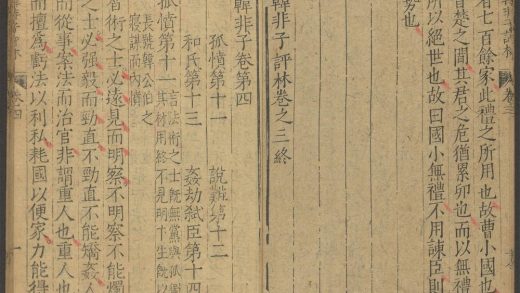 者七百餘家此禮之所用也故曹小國也
晉楚之間其君之危猶累卵也而以無禮
所以絕世也故曰國小無禮不用諫臣則
勢也
韓非子評林卷之三終
韓非子卷第四
孤憤第十一
說難第十二
和氏第十三
姦劫弒臣第十四
孤憤第十一
言法術之士既無黨與孤獨
其材用終不見明卞生既以
長號韓公伯之
寢謀而內憤
智術之士必遠見而明察不明察不能燭
之士必強毅而勁直不勁直不能矯姦人
而從事案法而治官非謂重人也重人也
而擅為虧法以利私耗國以便家力能得
卷四